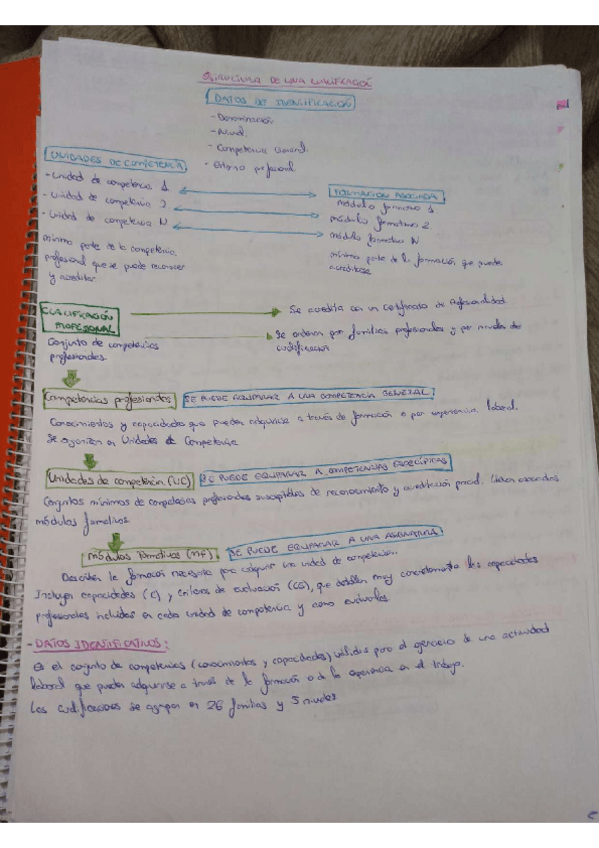 ESTRUCTURA DE UNA CUALIFICACIÓN
DATOS DE IDENTIFICACIÓN
- Denominación.
- Nivel.
- Competencia General.
- Entorno profesional
UNIDADES DE COMPETENCIA
- Unidad de competencia 1
- Unidad de competencia 2
- Unidad de competencia N
mínima parte de la competencia
profesional que se puede reconocer
y acreditar
FORMACIÓN ASOCIADA
módulo formativo 1
módulo formativo 2
módulo formativo N
mínima parte de la formación que puede
acreditarse
CUALIFICACIÓN
PROFESIONAL
Conjunto de competencias
profesionales.
Se acredita con un Certificado de Profesionalidad
Se ordenan por familias profesionales y por niveles de
cualificación
Competencias profesionales SE PUEDE EQUIPARAR A UNA COMPETENCIA GENERAL
Conocimientos y capacidades que pueden adquirirse a través de formación o por experiencia laboral.
Se organizan en Unidades de Competencia
Unidades de competencia (UC) SE PUEDE EQUIPARAR A COMPETENCIAS ESPECÍFICAS
Conjuntos mínimos de competencias profesionales susceptibles de reconocimiento y acreditación parcial. Llevan asociados
módulos formativos
módulos formativos (MF) SE PUEDE EQUIPARAR A UNA ASIGNATURA
Describen la formación necesaria para adquirir una unidad de competencia.
Incluyen capacidades (C) y criterios de evaluación (CE), que detallan muy concretamente las capacidades
profesionales incluidas en cada unidad de competencia y como evaluarlas.
- DATOS IDENTIFICATIVOS:
Es el conjunto de competencias (conocimientos y capacidades) válidas para el ejercicio de una actividad
laboral que pueden adquirirse a través de la formación o de la experiencia en el trabajo.
Las cualificaciones se agrupan en 26 familias y 5 niveles
2